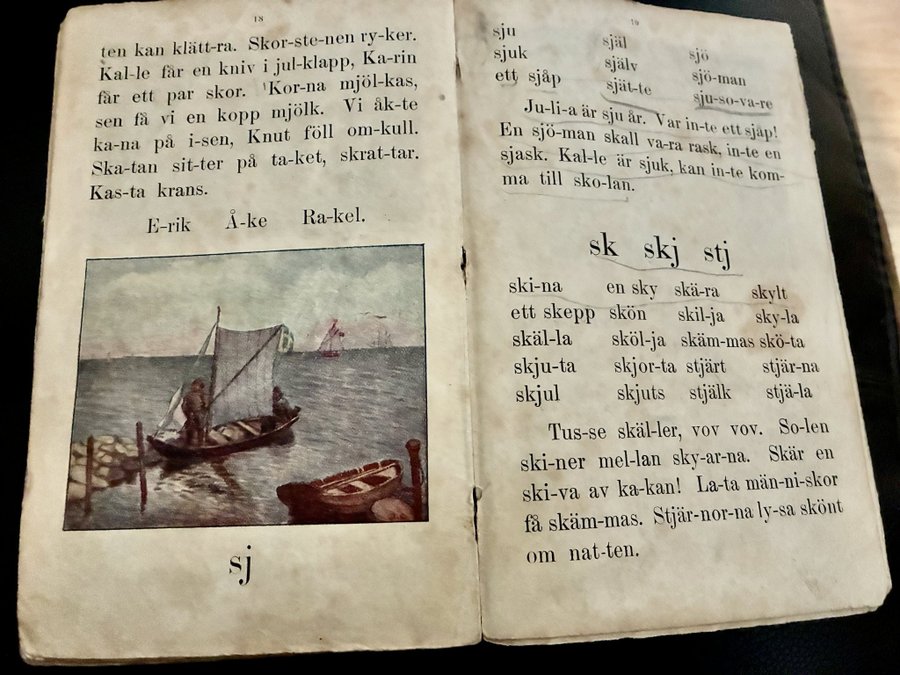 18
ten kan klätt-ra. Skor-ste-nen ry-ker.
Kal-le får en kniv i jul-klapp, Ka-rin
får ett par skor. Kor-na mjöl-kas,
sen få vi en kopp mjölk. Vi åk-te
ka-na på i-sen, Knut föll om-kull.
Ska-tan sit-ter på ta-ket, skrat-tar.
Kas-ta krans.
E-rik Å-ke Ra-kel.
sj
19
sju själ sjö
sjuk själv sjö-man
ett sjåp sjät-te sju-so-va-re
Ju-li-a är sju år. Var in-te ett sjåp!
En sjö-man skall va-ra rask, in-te en
sjask. Kal-le är sjuk, kan in-te kom-
ma till sko-lan.
sk skj stj
ski-na en sky skä-ra skylt
ett skepp skön skil-ja sky-la
skäl-la sköl-ja skäm-mas skö-ta
skju-ta skjor-ta stjärt stjär-na
skjul skjuts stjälk stjä-la
Tus-se skäl-ler, vov vov. So-len
ski-ner mel-lan sky-ar-na. Skär en
ski-va av ka-kan! La-ta män-ni-skor
få skäm-mas. Stjär-nor-na ly-sa skönt
om nat-ten.